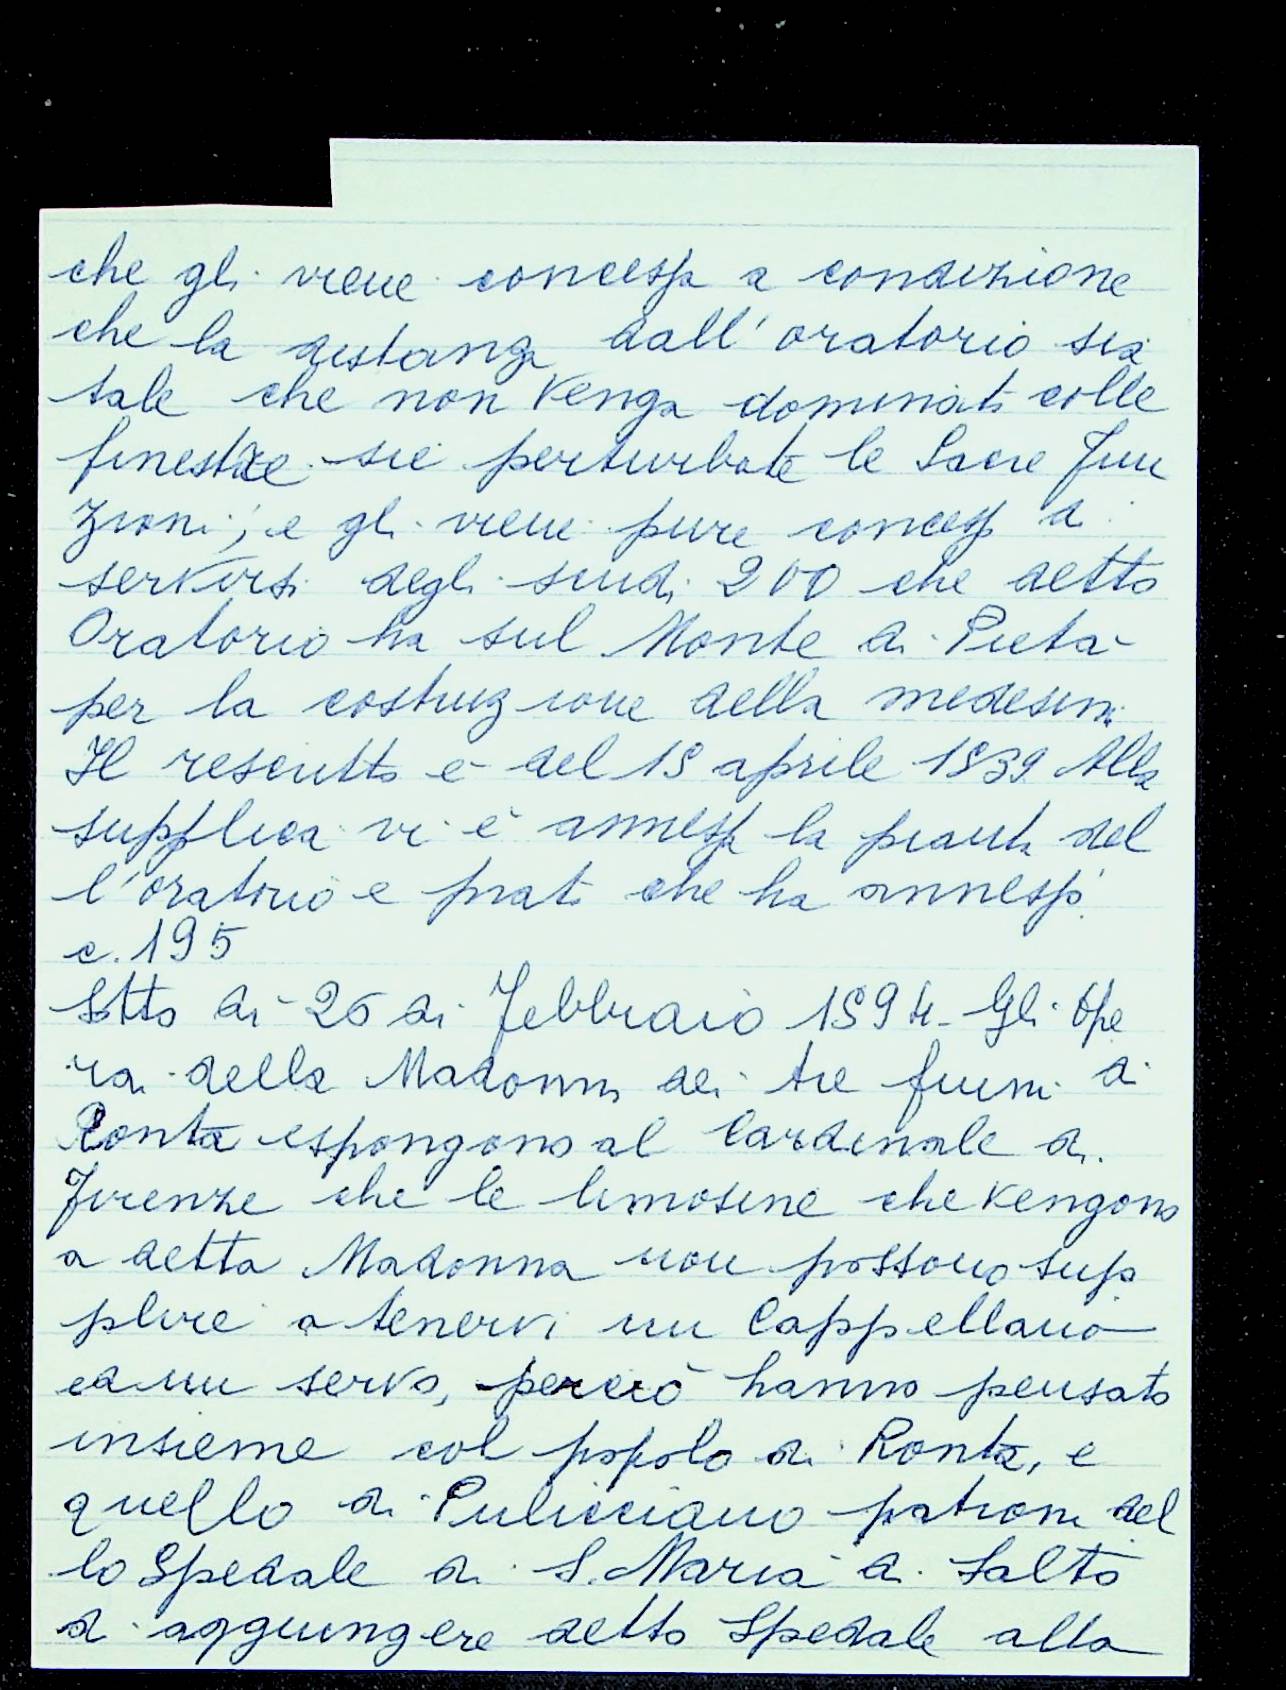 che gli viene concessa a condizione
che la distanza dall'oratorio sia
tale che non venga dominati colle
finestre sie perturbate le Sacre Fun
zioni; e gli viene pure concesso di
servirsi degli scudi 200 che detto
Oratorio ha sul Monte di Pietà
per la costruzione della medesima
Il rescritto è del 18 aprile 1839. Alla
supplica vi è annessa la pianta del
l'oratorio e prati che ha annessi.
c. 195
Sotto di 26 di Febbraio 1894. Gli Ope
rai della Madonna dei tre fiumi di
Ronta espongono al Cardinale di
Firenze che le limosine che vengono
a detta Madonna non possono sup
plire a tenervi un Cappellano
ed un servo, perciò hanno pensato
insieme col popolo di Ronta, e
quello di Pulicciano patroni del
lo Spedale di S. Maria a Salto
di aggiungere detto Spedale alla